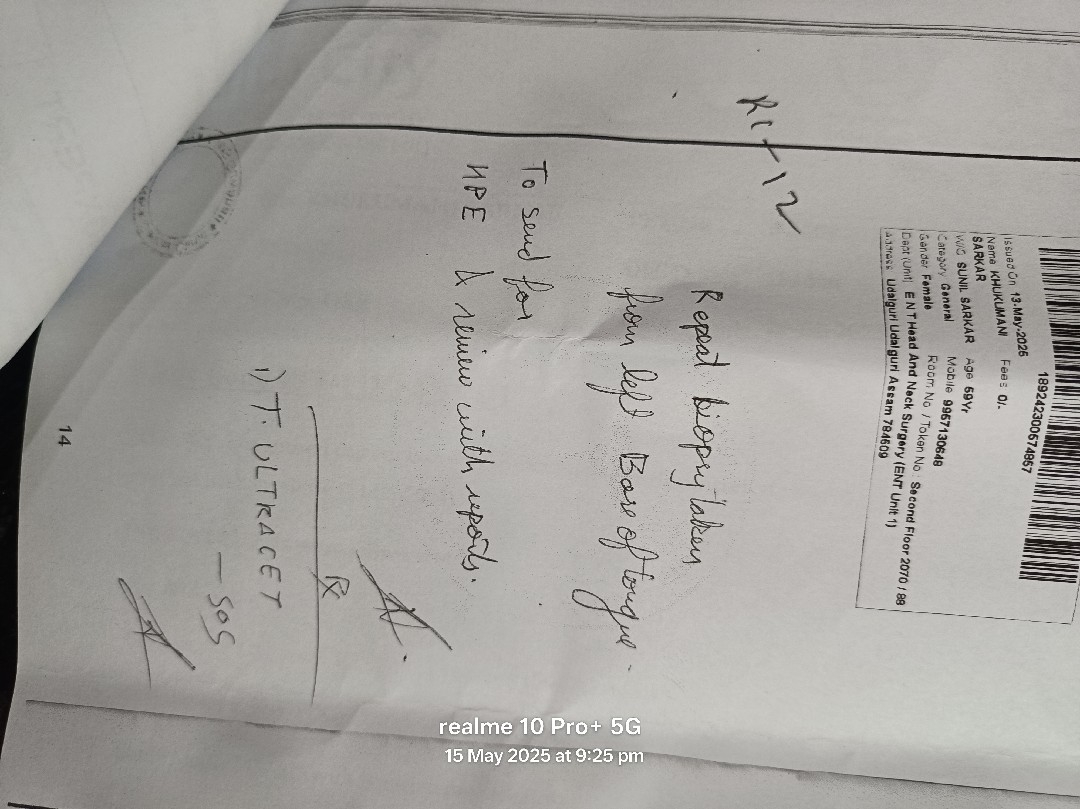 189242300574857
Issued On 13-May-2025 Fees 0/-
Name KHUKUMANI
SARKAR
W/O SUNIL SARKAR Age 59Yr
Category General Mobile 9957130648
Gender Female Room No / Token No : Second Floor 2070 / 89
Dept (Unit) E N T Head And Neck Surgery (ENT Unit 1)
Address Udalguri Udalguri Assam 784509
Repeat biopsy taken
from left Base of tongue.
To send for
HPE & review with reports.
Rx
1) T. ULTRACET
– SOS
14
realme 10 Pro+ 5G
15 May 2025 at 9:25 pm